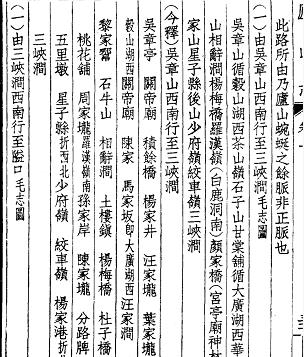 此路所由乃廬山蜿蜒之餘脈非正脈也
(一)由吳章山西南行至三峽澗毛志圖
吳章山循㲄山湖西茶山嶺石子山甘棠舖循大廣湖西華
山相辭澗楊梅橋羅漢嶺(白鹿洞南)顏家橋(宮亭廟神林
家山星子縣後山少府嶺絞車嶺三峽澗
(今釋)吳章山西南行至三峽澗
吳章亭 關帝廟 積餘橋 楊家井 汪家壠 葉家壠
㲄山湖西關帝廟 陳家 馬家坂卽大廣湖西汪家澗
黎家窰 石牛山 相辭澗 土樓鎮 楊梅橋 杜子橋
桃花舖 周家壠羅漢嶺南孫家岸 陳家壠 分路牌
五里墩 星子縣折西北少府嶺 絞車嶺 楊家港折
三峽澗
(一)由三峽澗西南行至隘口毛志圖